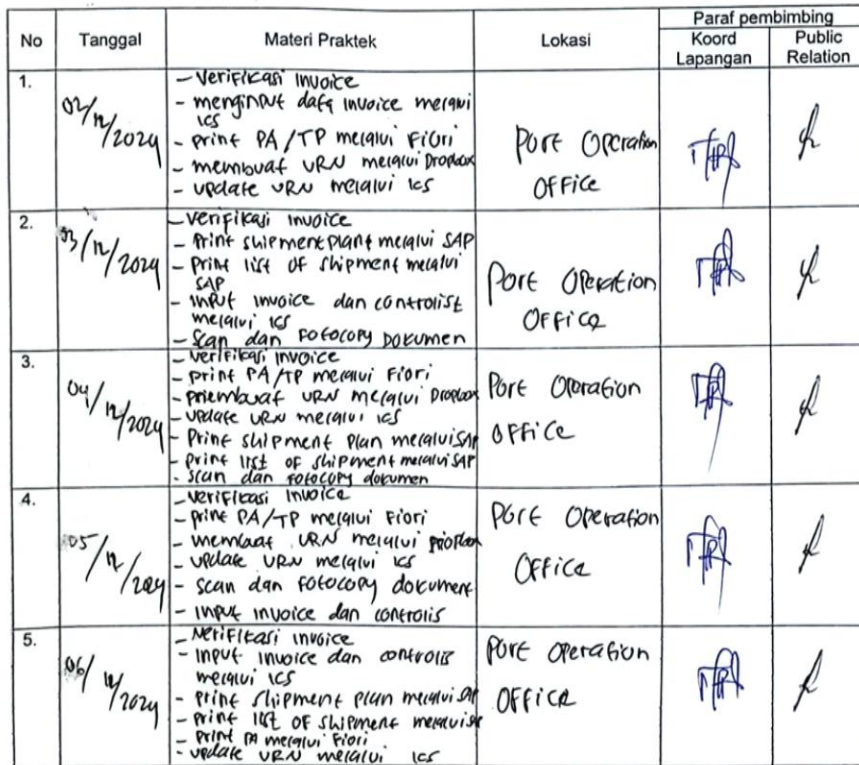 No Tanggal Materi Praktek Lokasi Paraf pembimbing
Koord Lapangan Public Relation
1.
02/12/2024
- Verifikasi invoice
- menginput data invoice melalui
ICS
- print PA/TP melalui Fiori
- membuat URN melalui Dropbox
- update URN melalui ICS
Port Operation
Office
2.
03/12/2024
- Verifikasi invoice
- Print shipment plant melalui SAP
- Print list of shipment melalui
SAP
- Input invoice dan controlist
melalui ICS
- Scan dan Fotocopy Dokumen
Port Operation
Office
3.
04/12/2024
- Verifikasi invoice
- print PA/TP melalui Fiori
- membuat URN melalui Dropbox
- update URN melalui ICS
- Print shipment plan melalui SAP
- print list of shipment melalui SAP
- scan dan fotocopy dokumen
Port Operation
Office
4.
05/12/2024
- Verifikasi invoice
- print PA/TP melalui Fiori
- membuat URN melalui
- update URN melalui ICS
- scan dan fotocopy dokument
- input invoice dan controlis
Port Operation
Office
5.
06/12/2024
- Verifikasi invoice
- Input invoice dan controlis
melalui ICS
- print shipment plan melalui SAP
- print list of shipment melalui
- print PA melalui Fiori
- update URN melalui ICS
Port Operation
Office